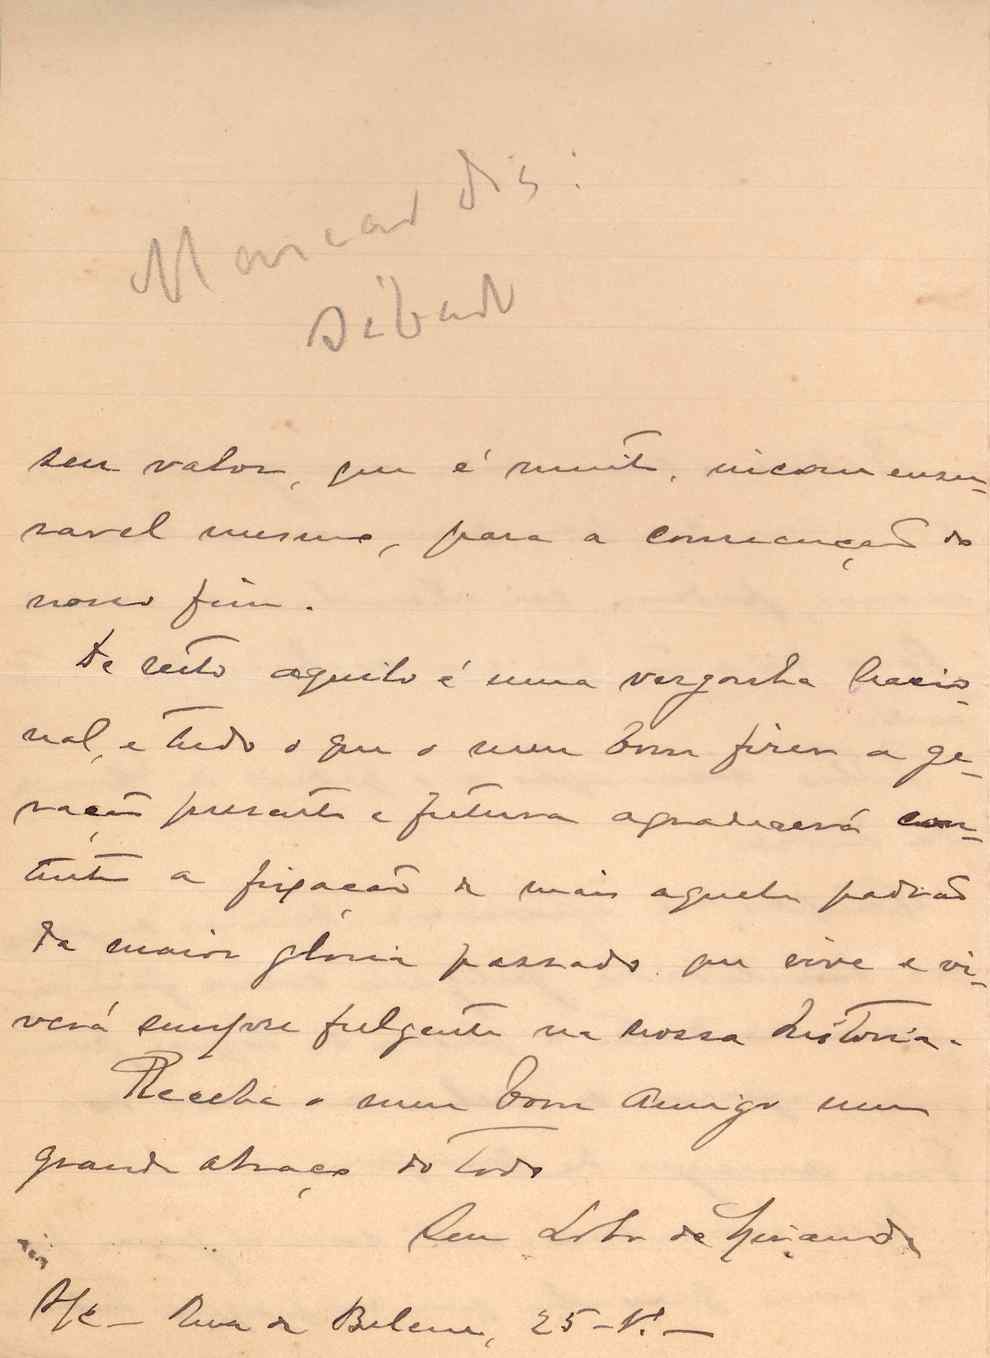 Marcar dia:
Sábado
seu valor, que é muito, incomensu-
ravel mesmo, para a consecução do
nosso fim.
De resto aquilo é uma vergonha nacio-
nal, e tudo o que o meu bom fizer a ge-
ração presente e futura agradecerá con-
tente a fixação de mais aquele padrão
da maior gloria passada que vive e vi-
verá sempre fulgente na nossa historia.
Receba o meu bom amigo um
grande abraço do todo
Seu Lobo de Miranda
S/c – Rua de Belem, 25 – 1º. –